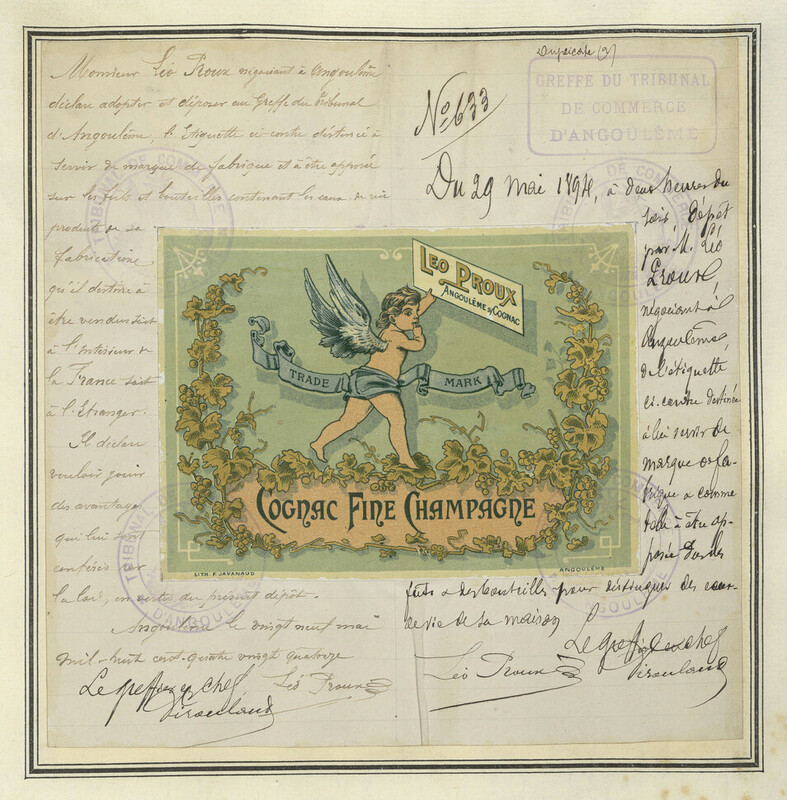 Monsieur Léo Proux négociant à Angoulême
déclare adopter et déposer au Greffe du Tribunal
d'Angoulême, l'Etiquette ci-contre destinée à
servir de marque de fabrique et à être apposée
sur les fûts et bouteilles contenant les eaux-de-vie
produits de sa
fabrication,
qu'il destine à
être vendus soit
à l'intérieur de
la France soit
à l'Etranger.
Il déclare
vouloir jouir
des avantages
qui lui sont
conférés par
la loi, en vertu du présent dépôt.
Angoulême le vingt neuf mai
mil-huit cent-quatre vingt quatorze
Le greffier en chef
Léo Proux
Duplicata (3)
GREFFE DU TRIBUNAL
DE COMMERCE
D'ANGOULÊME
No 633
Du 29 Mai 1894, à deux heures du
soir, dépôt
par M. Léo
Proux,
négociant à
Angoulême,
de l'étiquette
ci-contre destinée
à lui servir de
marque de fa-
brique & comme
telle à être ap-
posée sur les
fûts & des bouteilles pour distinguer des eaux-
de-vie de sa maison
Léo Proux
Le greffier en chef
LEO PROUX
ANGOULÊME & COGNAC
TRADE MARK
COGNAC FINE CHAMPAGNE
LITH. F. JAVANAUD
ANGOULÊME
TRIBUNAL DE COMMERCE
D'ANGOULÊME